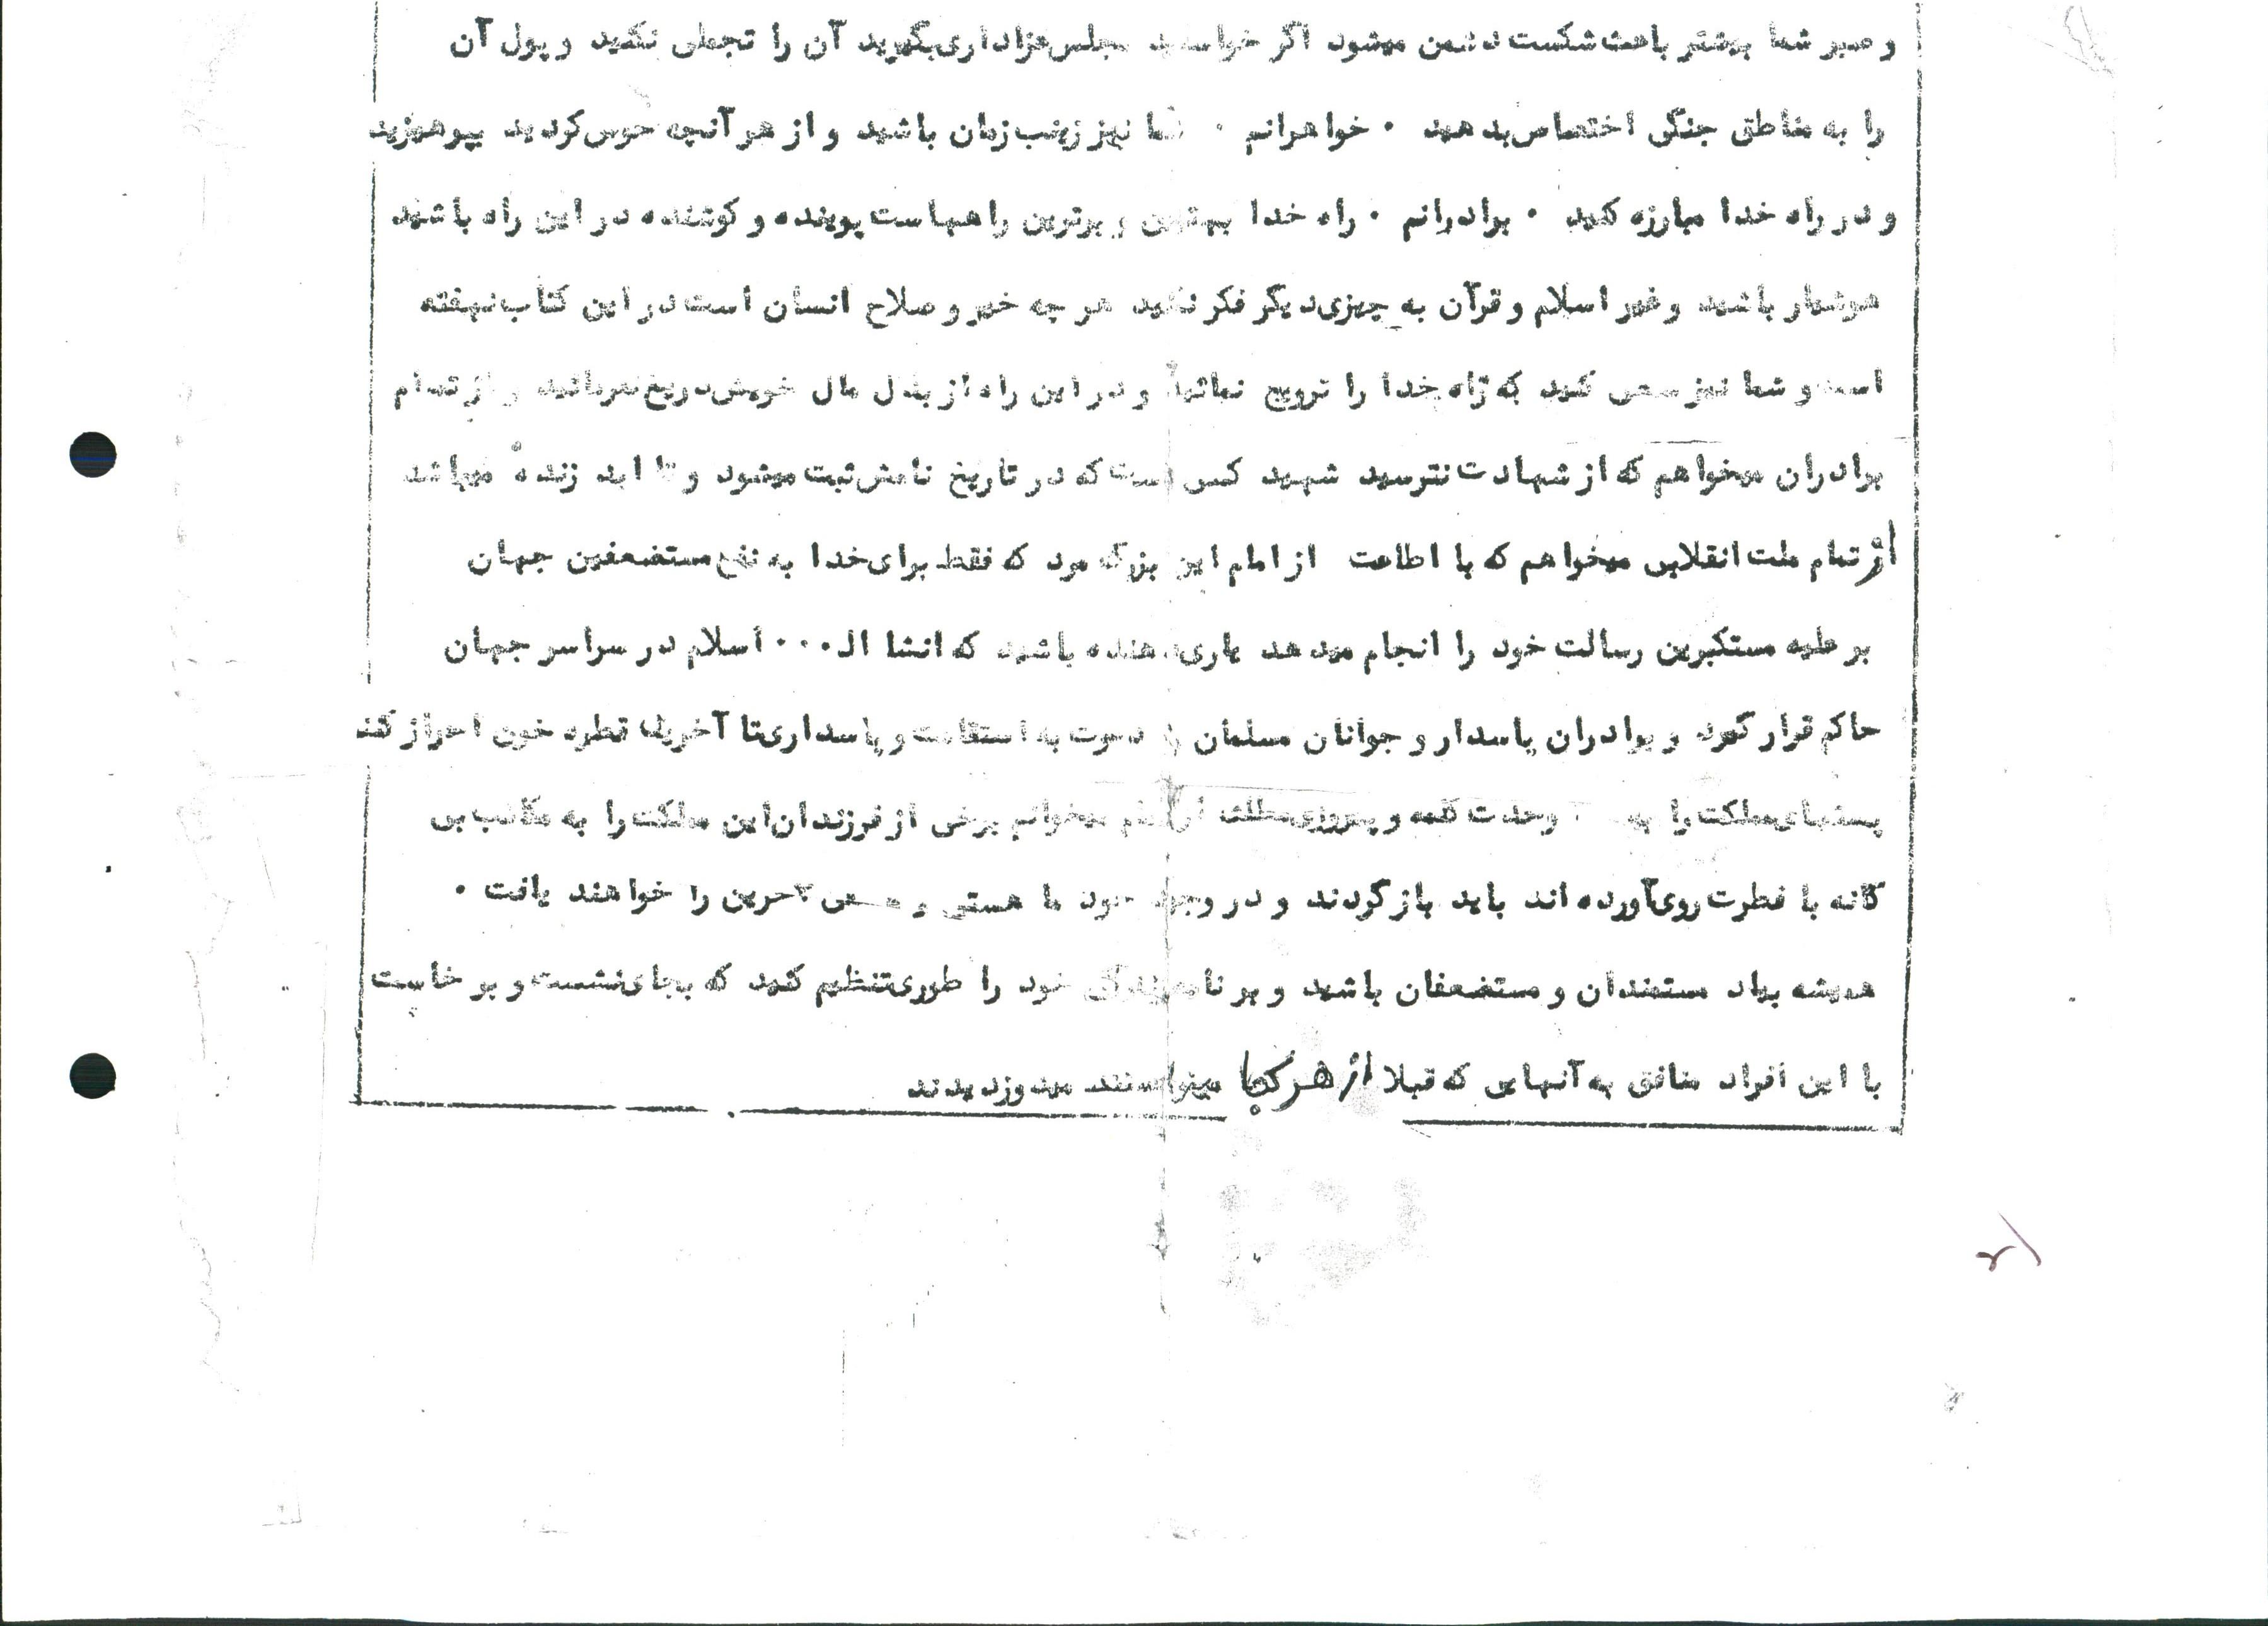 و صبر شما بیشتر باعث شکست دشمن میشود اگر خواستید مجلس عزاداری بگیرید آن را تجملی نکنید و پول آن
را به مناطق جنگی اختصاص بدهید ۰ خواهرانم ۰ شما نیز زینب زمان باشید و از هر آنچه حوس کردید بپرهیزید
و در راه خدا مبارزه کنید ۰ برادرانم ۰ راه خدا بهترین و برترین راههاست پوینده و کوشنده در این راه باشید
هوشیار باشید و غیر اسلام و قرآن به چیزی دیگر فکر نکنید هر چه خیر و صلاح انسان است در این کتاب نهفته
است و شما نیز سعی کنید که راه خدا را ترویج نمائید و در این راه از بذل مال خویش دریغ نفرمائید و از تمام
برادران میخواهم که از شهادت نترسید شهید کسی است که در تاریخ نامش ثبت میشود و تا ابد زنده میباشد
از تمام ملت انقلابی میخواهم که با اطاعت از امام این بزرگ مرد که فقط برای خدا به نفع مستضعفین جهان
بر علیه مستکبرین رسالت خود را انجام میدهد یاری دهنده باشید که انشا ال۰۰۰ اسلام در سراسر جهان
حاکم قرار گیرد و برادران پاسدار و جوانان مسلمان را دعوت به استقامت و پاسداری تا آخرین قطره خون احراز کند
پستهای مملکت را وحدت کلمه و پیروزی میخوانم برخی از فرزندان این مملکت را به مکاتب بی
گانه با فطرت روی آورده اند باید باز گردند و در وجود خود ما هستی و را خواهند یافت ۰
همیشه بیاد مستمندان و مستضعفان باشید و برنامه زندگی خود را طوری تنظیم کنید که بجای نشست و برخاست
با این افراد منافق به آنهایی که قبلا از هر کجا میتوانستند میدوزدیدند
۲۱